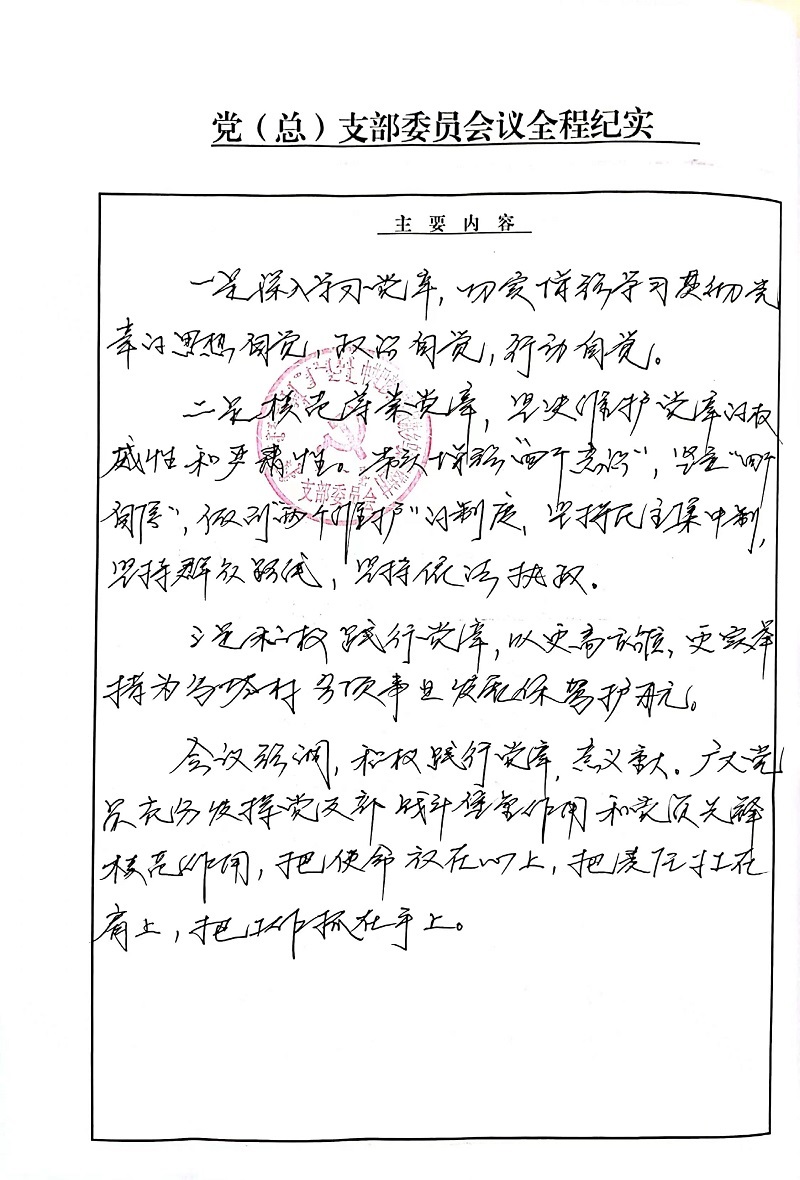 党（总）支部委员会议全程纪实
主要内容
一是深入学习党章，切实增强学习贯彻党
章的思想自觉，政治自觉，行动自觉。
二是模范遵崇党章，坚决维护党章的权
威性和严肃性。带头增强“四个意识”，坚定“四个
自信”，做到“两个维护”的制度，坚持民主集中制，
坚持群众路线，坚持依法执权．
三是积极践行党章，以更高的标准，更实举
措为村各项事业发展保驾护航。
会议强调，积极践行党章，意义重大．广大党
员充分发挥党支部战斗堡垒作用和党员先锋
模范作用，把使命放在心上，把责任扛在
肩上，把工作抓在手上。
支部委员会